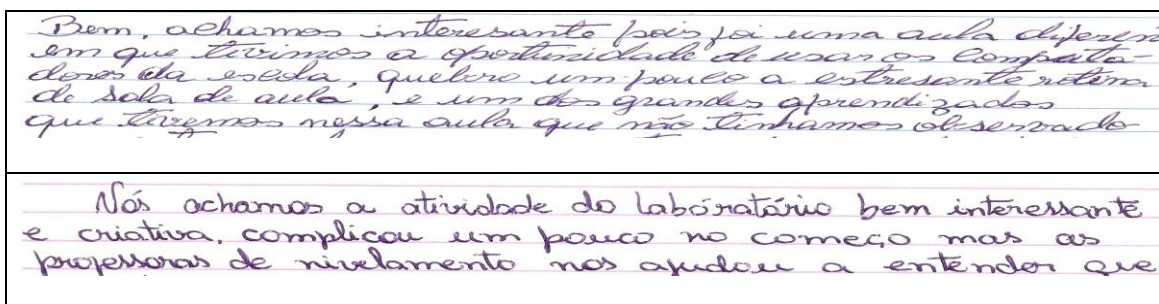 Bem, achamos interesante pois foi uma aula diferen
em que tivimos a oportunidade de usar os computa-
dores da escola, quebro um pouco a estresante rotina
de sala de aula, e um dos grandes aprendizados
que tivemos nessa aula que não tinhamos observado
Nós achamos a atividade do laboratório bem interessante
e criativa, complicou um pouco no começo mas as
professoras de nivelamento nos ajudou a entender que